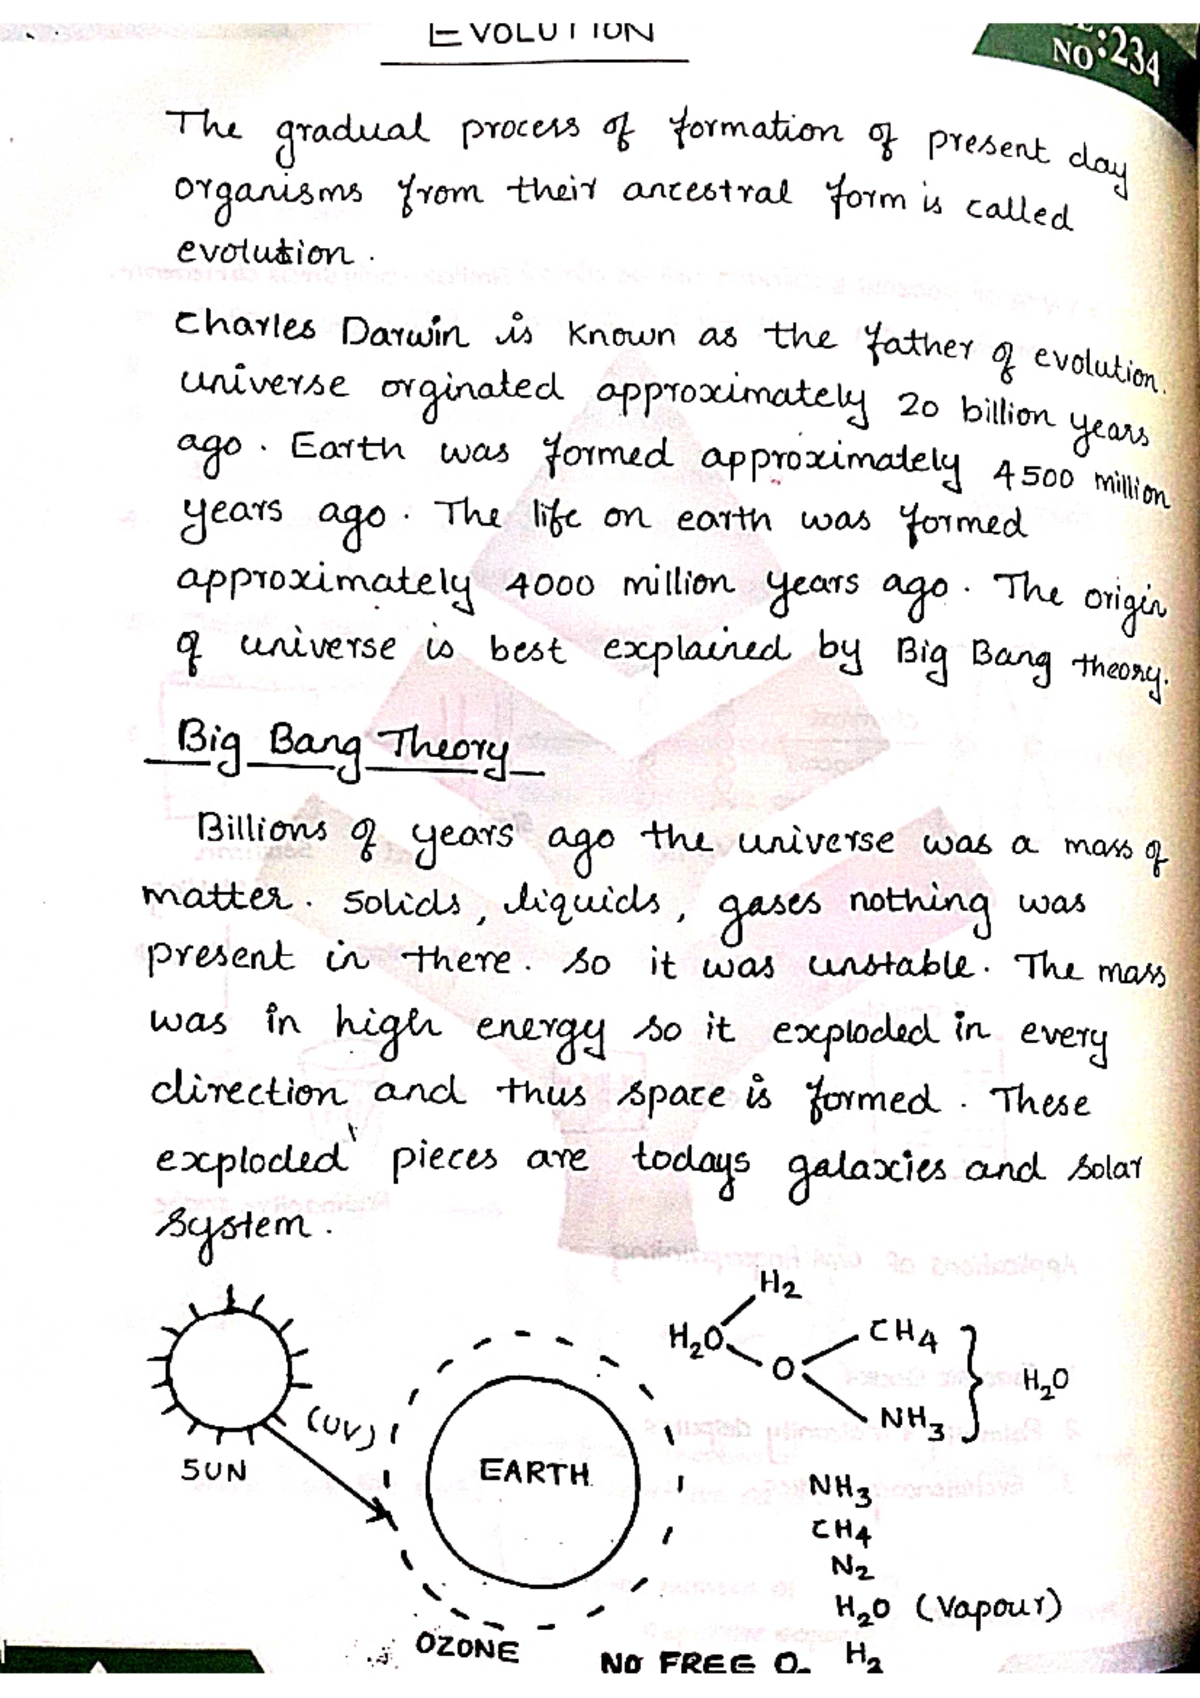 EVOLUTION
NO:234
The gradual process of formation of present day
organisms from their ancestral form is called
evolution.
Charles Darwin is known as the father of evolution.
universe orginated approximately 20 billion years
ago. Earth was formed approximately 4500 million
years ago. The life on earth was formed
approximately 4000 million years ago. The origin
of universe is best explained by Big Bang theory.
Big Bang Theory
Billions of years ago the universe was a mass of
matter. Solids, liquids, gases nothing was
present in there. So it was unstable. The mass
was in high energy so it exploded in every
direction and thus space is formed. These
exploded pieces are todays galaxies and solar
system.
H2
H2O
CH4
O
H2O
NH3
(UV)
SUN
EARTH
NH3
CH4
N2
H2O (Vapour)
H2
OZONE
NO FREE O2